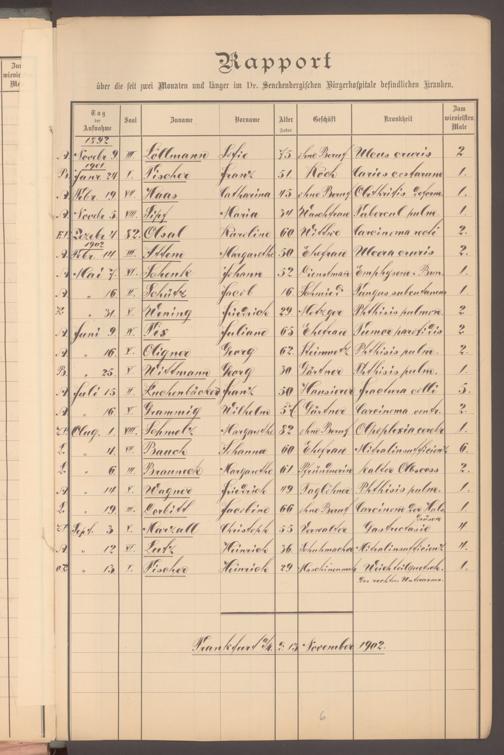 Rapport
über die seit zwei Monaten und länger im Dr. Senckenbergischen Bürgerhospitale befindlichen Kranken.
Tag der Aufnahme Saal Zuname Vorname Alter Jahre Geschäft Krankheit Zum wievielsten Male
1892
A. Novbr. 9 III Söllmann Sofie 75 ohne Beruf Ulcus cruris 2
1901
Janr. 24 I. Fischer Franz 51 Koch Caries costarum 1.
A. Febr. 19 VII. Haas Catharina 45 ohne Beruf Arthritis deform. 1.
A. Novbr. 5 VIII. Maria 34 Tubercul. pulm. 1.
Dezbr. 4 Karoline 60 Wittwe Carcinoma recti 2.
1902
A. Febr. 14 III. Margarethe 50 Ehefrau Ulcera cruris 2.
A. Mai 7. VI. Schenk Johann 52 Dienstmann Emphysem 1.
A. " 16 II. Schütz Jacob 16 Schmied Fungus 1.
" 31 V. Wening Friedrich 29 Metzger Phthisis pulmon. 2
A. Juni 9 Fix Juliane 65 Ehefrau Tumor parotidis 2.
A. " 16 V. Oligner Georg 62. Steinmetz Phthisis pulm. 2.
B. " 25 V. Wittmann Georg 30 Gärtner Phthisis pulm. 1.
A. Juli 15 II. Kuchenbäcker Franz 50 Hausierer colli 5.
A. " 16 V. Grammig Wilhelm Gärtner Carcinoma ventr. 2
Aug. 1. VIII. Schmelz Margarethe 52 ohne Beruf Apoplexia cerebr. 1.
" 4 VII Bauck Johanna 60 Ehefrau Mitralinsufficienz 6.
" 6 III Brauneck Margarethe 61 Pfründnerin kalter Abscess 2.
A. " 14 V. Wagner Friedrich 49 Taglöhner Phthisis pulm. 1.
" 19 III Corbitt Jacobine 66 ohne Beruf Carcinom der Hals 1.
drüsen
Sept. 3 V. Marzall Christoph 55 Verwalter Gastectasie 4
A. " 12 VI Lutz Heinrich 36 Schuhmacher Mitralinsufficienz 4.
" 13 I. Fischer Heinrich 29 Weichteilquetsch. 1.
des rechten Unterarms.
Frankfurt a/M. d. 13 November 1902.
6